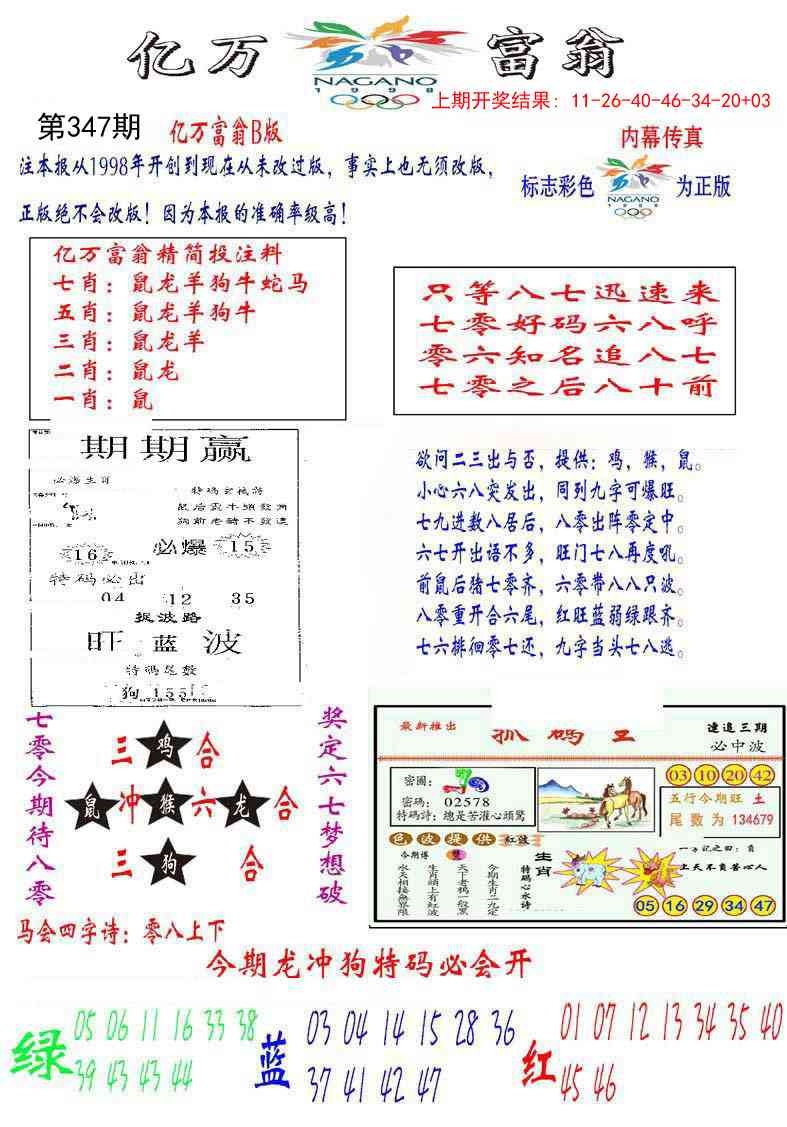 亿万富翁
NAGANO
1998
上期开奖结果：11-26-40-46-34-20+03
第347期
亿万富翁B版
内幕传真
注本报从1998年开创到现在从未改过版，事实上也无须改版，
正版绝不会改版！因为本报的准确率级高！
标志彩色
NAGANO
1998
为正版
亿万富翁精简投注料
七肖：鼠龙羊狗牛蛇马
五肖：鼠龙羊狗牛
三肖：鼠龙羊
二肖：鼠龙
一肖：鼠
只等八七迅速来
七零好码六八呼
零六知名追八七
七零之后八十前
期期赢
必爆
16
15
特码必出
04 12 35
捉波路
旺蓝波
特码尾数
狗 155
欲问二三出与否，提供：鸡，猴，鼠。
小心六八突发出，同到九字可爆旺。
七九进数八居后，八零出阵零定中。
六七开出语不多，旺门七八再度吼。
前鼠后猪七零齐，六零带八八只波。
八零重开合六尾，红旺蓝弱绿跟齐。
七六排徊零七还，九字当头七八逃。
七零今期待八零
三鸡合
鼠冲猴六龙合
三狗合
奖定六七梦想破
最新推出
抓码王
連追三期
必中波
密圖：
密碼：02578
特碼詩：總是苦灌心頭驚
03 10 20 42
五行今期旺 土
尾数为 134679
色波提供 红波
今期博
水天相接無界限
生肖頭上有紅波
天下老鸦一般黑
今期生肖二九定
特碼心水詩
生肖
上天不負苦心人
05 16 29 34 47
马会四字诗：零八上下
今期龙冲狗特码必会开
绿
05 06 11 16 33 38
39 43 43 44
蓝
03 04 14 15 28 36
37 41 42 47
红
01 07 12 13 34 35 40
45 46